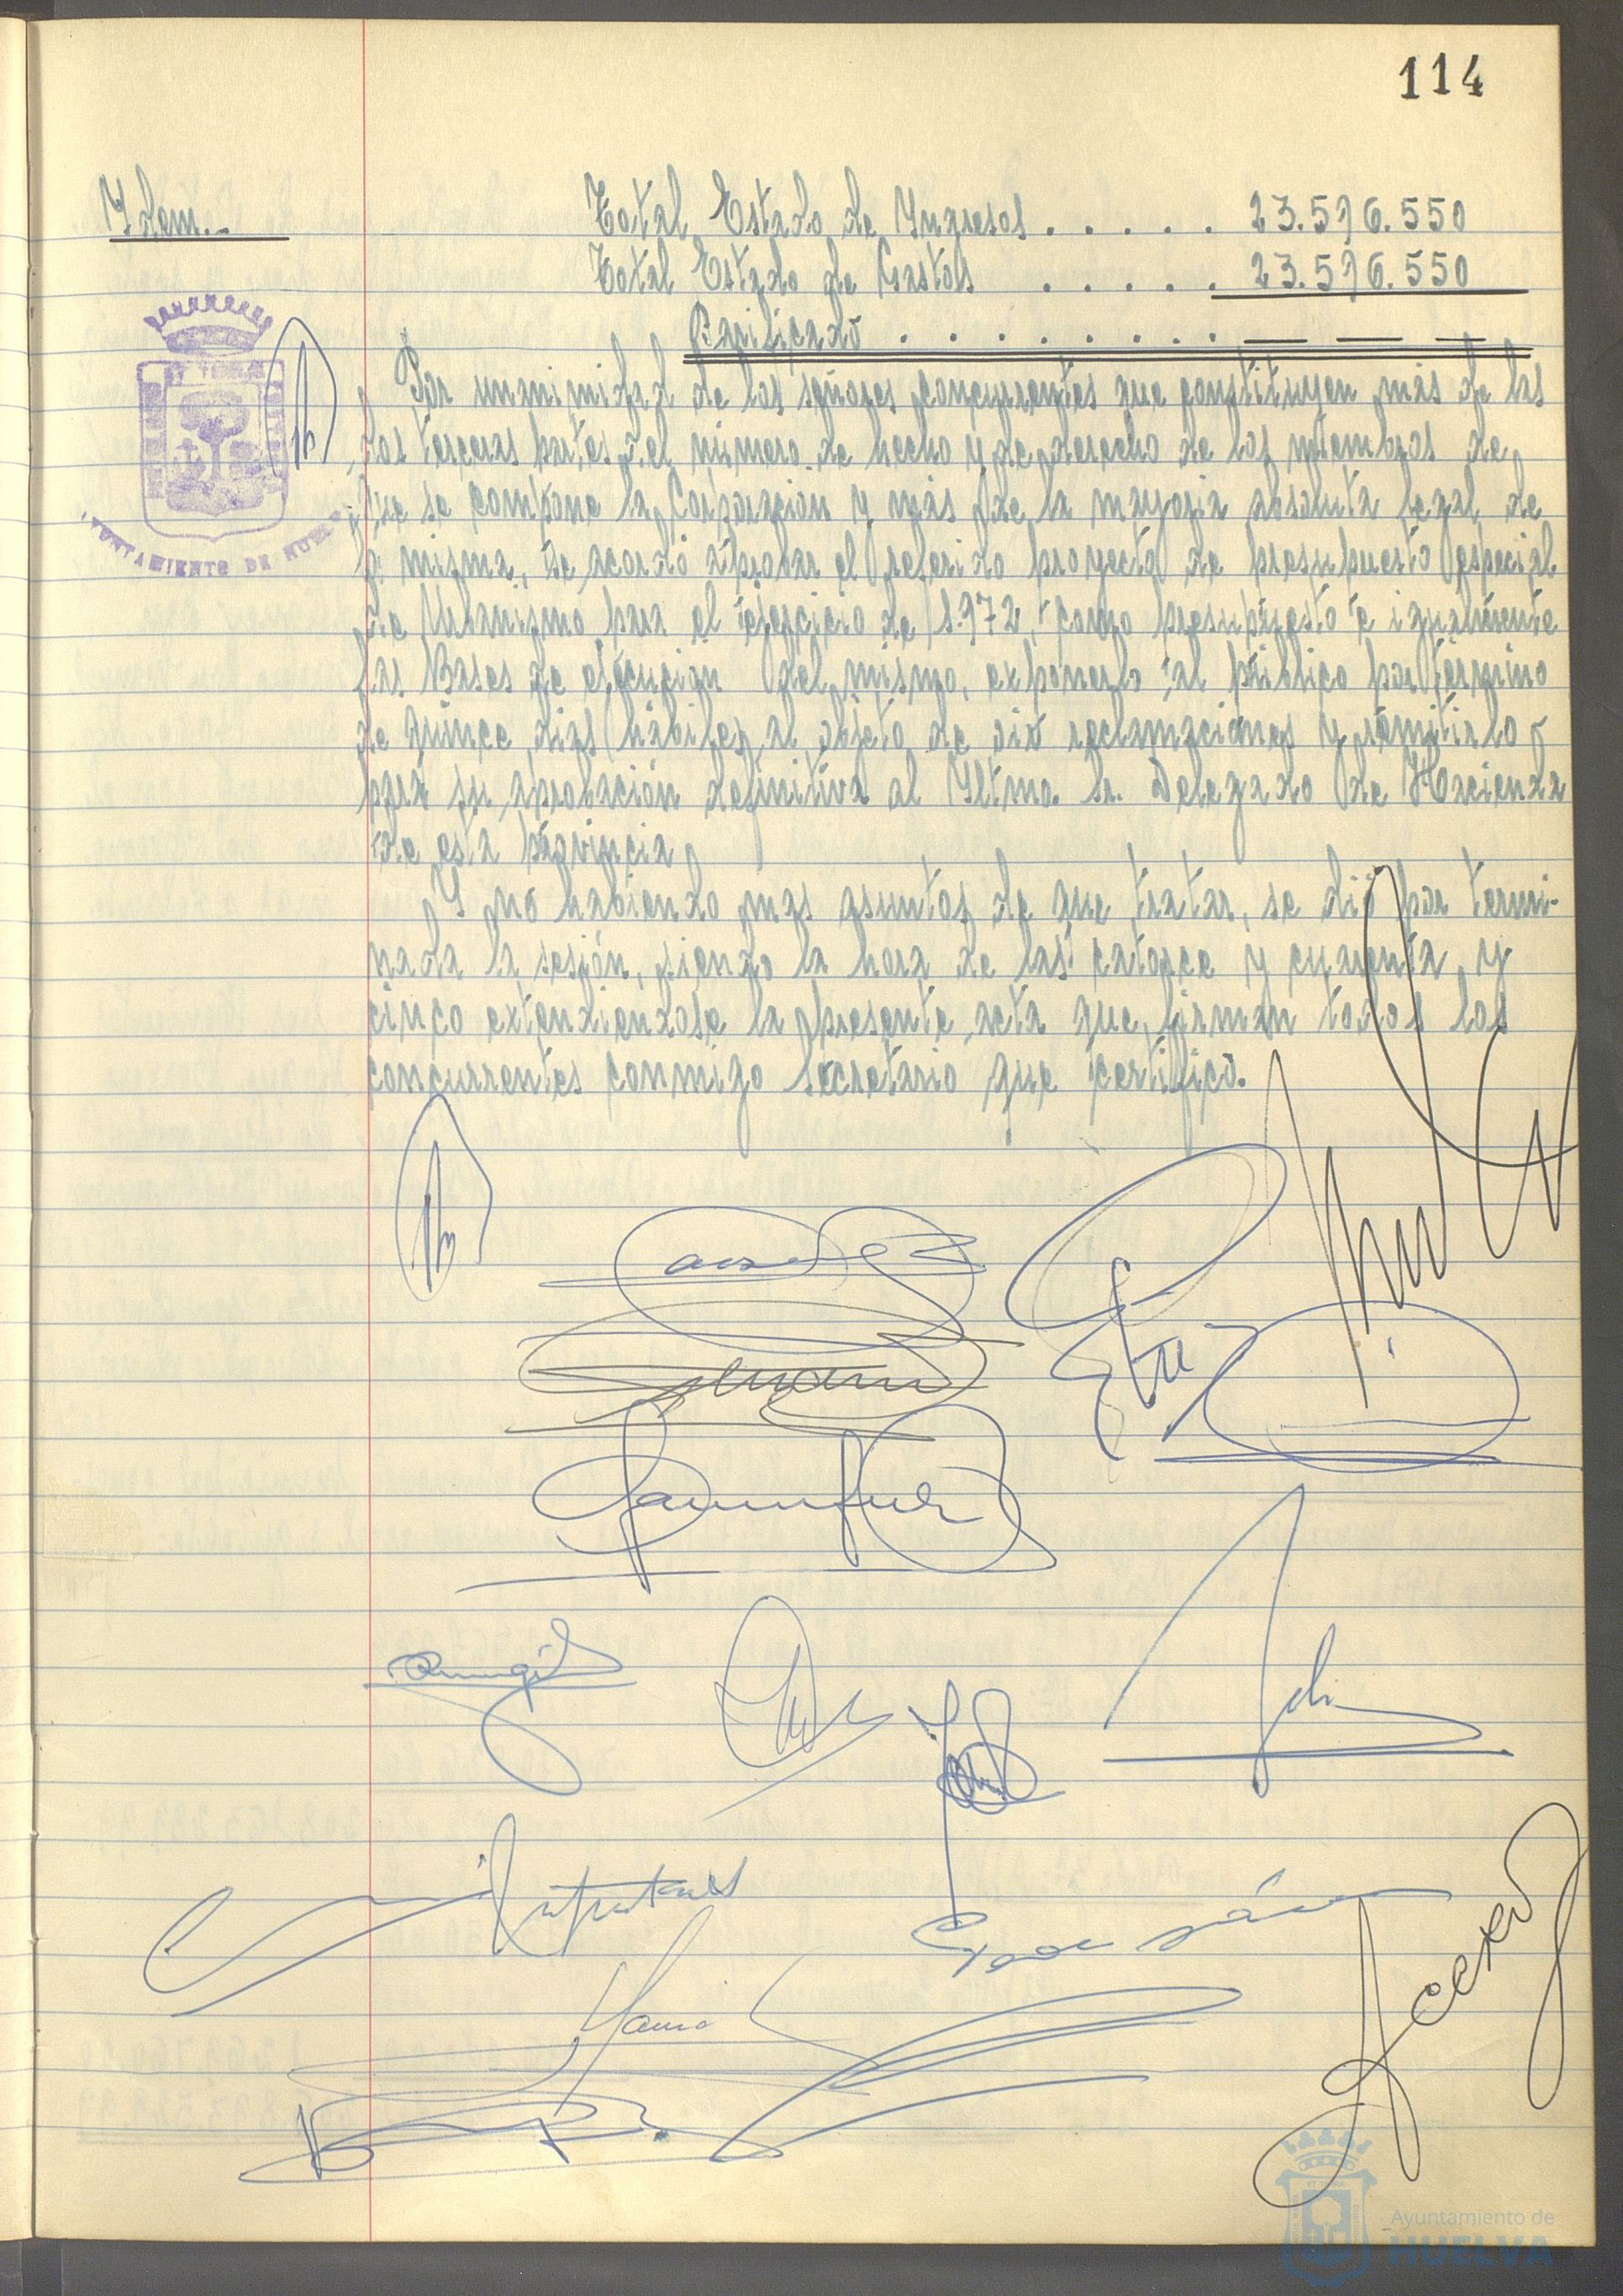 114
Ydem.- Total Estado de Yngresos . . . . . 23.596.550
Total Estado de Gastos . . . . . 23.596.550
Barificado . . . . . . . — — —
Por unanimidad de los señores concurrentes que constituyen más de las
dos terceras partes del número de hecho y de derecho de los miembros de
que se compone la Corporación y más de la mayoria absoluta legal de
la misma, se acordó aprobar el referido proyecto de presupuesto especial
de Urbanismo para el ejercicio de 1.972, como presupuesto e igualmente
las Bases de ejecución del mismo, exponerlo al público por término
de quince dias hábiles al objeto de oir reclamaciones y remitirlo
para su aprobación definitiva al Yltmo. Sr. Delegado de Hacienda
de esta provincia
Y no habiendo mas asuntos de que tratar, se dió por termi-
nada la sesión, siendo la hora de las catorce y cuarenta y
cinco extendiendose la presente acta que firman todos los
concurrentes conmigo Secretario que certifico.
AYUNTAMIENTO DE HUELVA
Ayuntamiento de
HUELVA